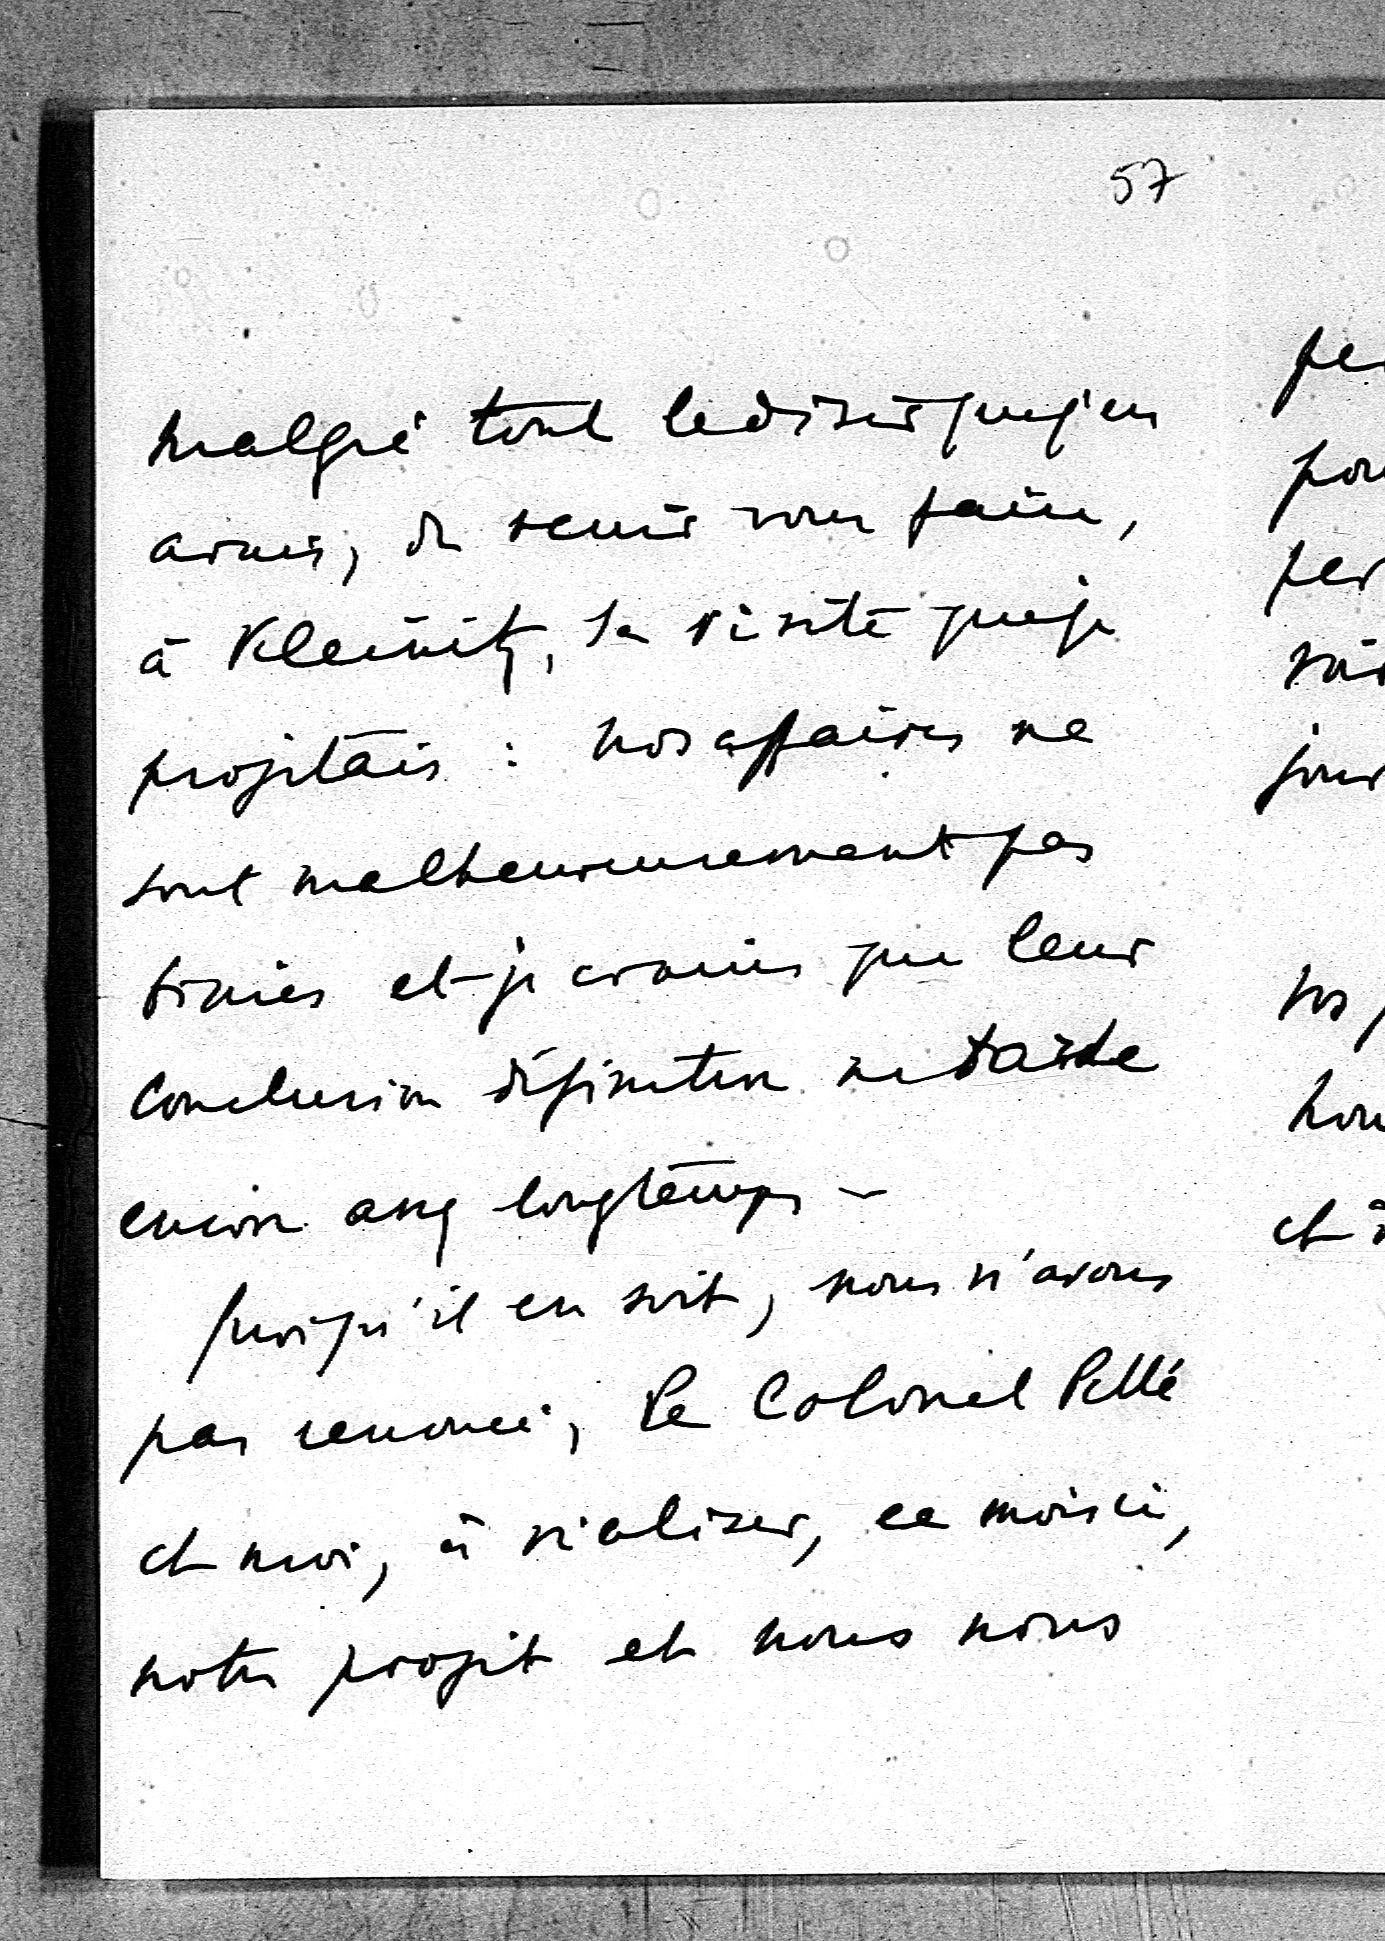 57
malgré tout le désir que j'en
avais, de venir vous faire,
à Kleinitz, la visite que je
projetais : nos affaires ne
sont malheureusement pas
finies et je crains que leur
conclusion définitive ne tarde
encore assez longtemps –
Quoiqu'il en soit, nous n'avons
pas renoncé, le Colonel Pellé
et moi, à réaliser, ce mois ci,
notre projet et nous nous